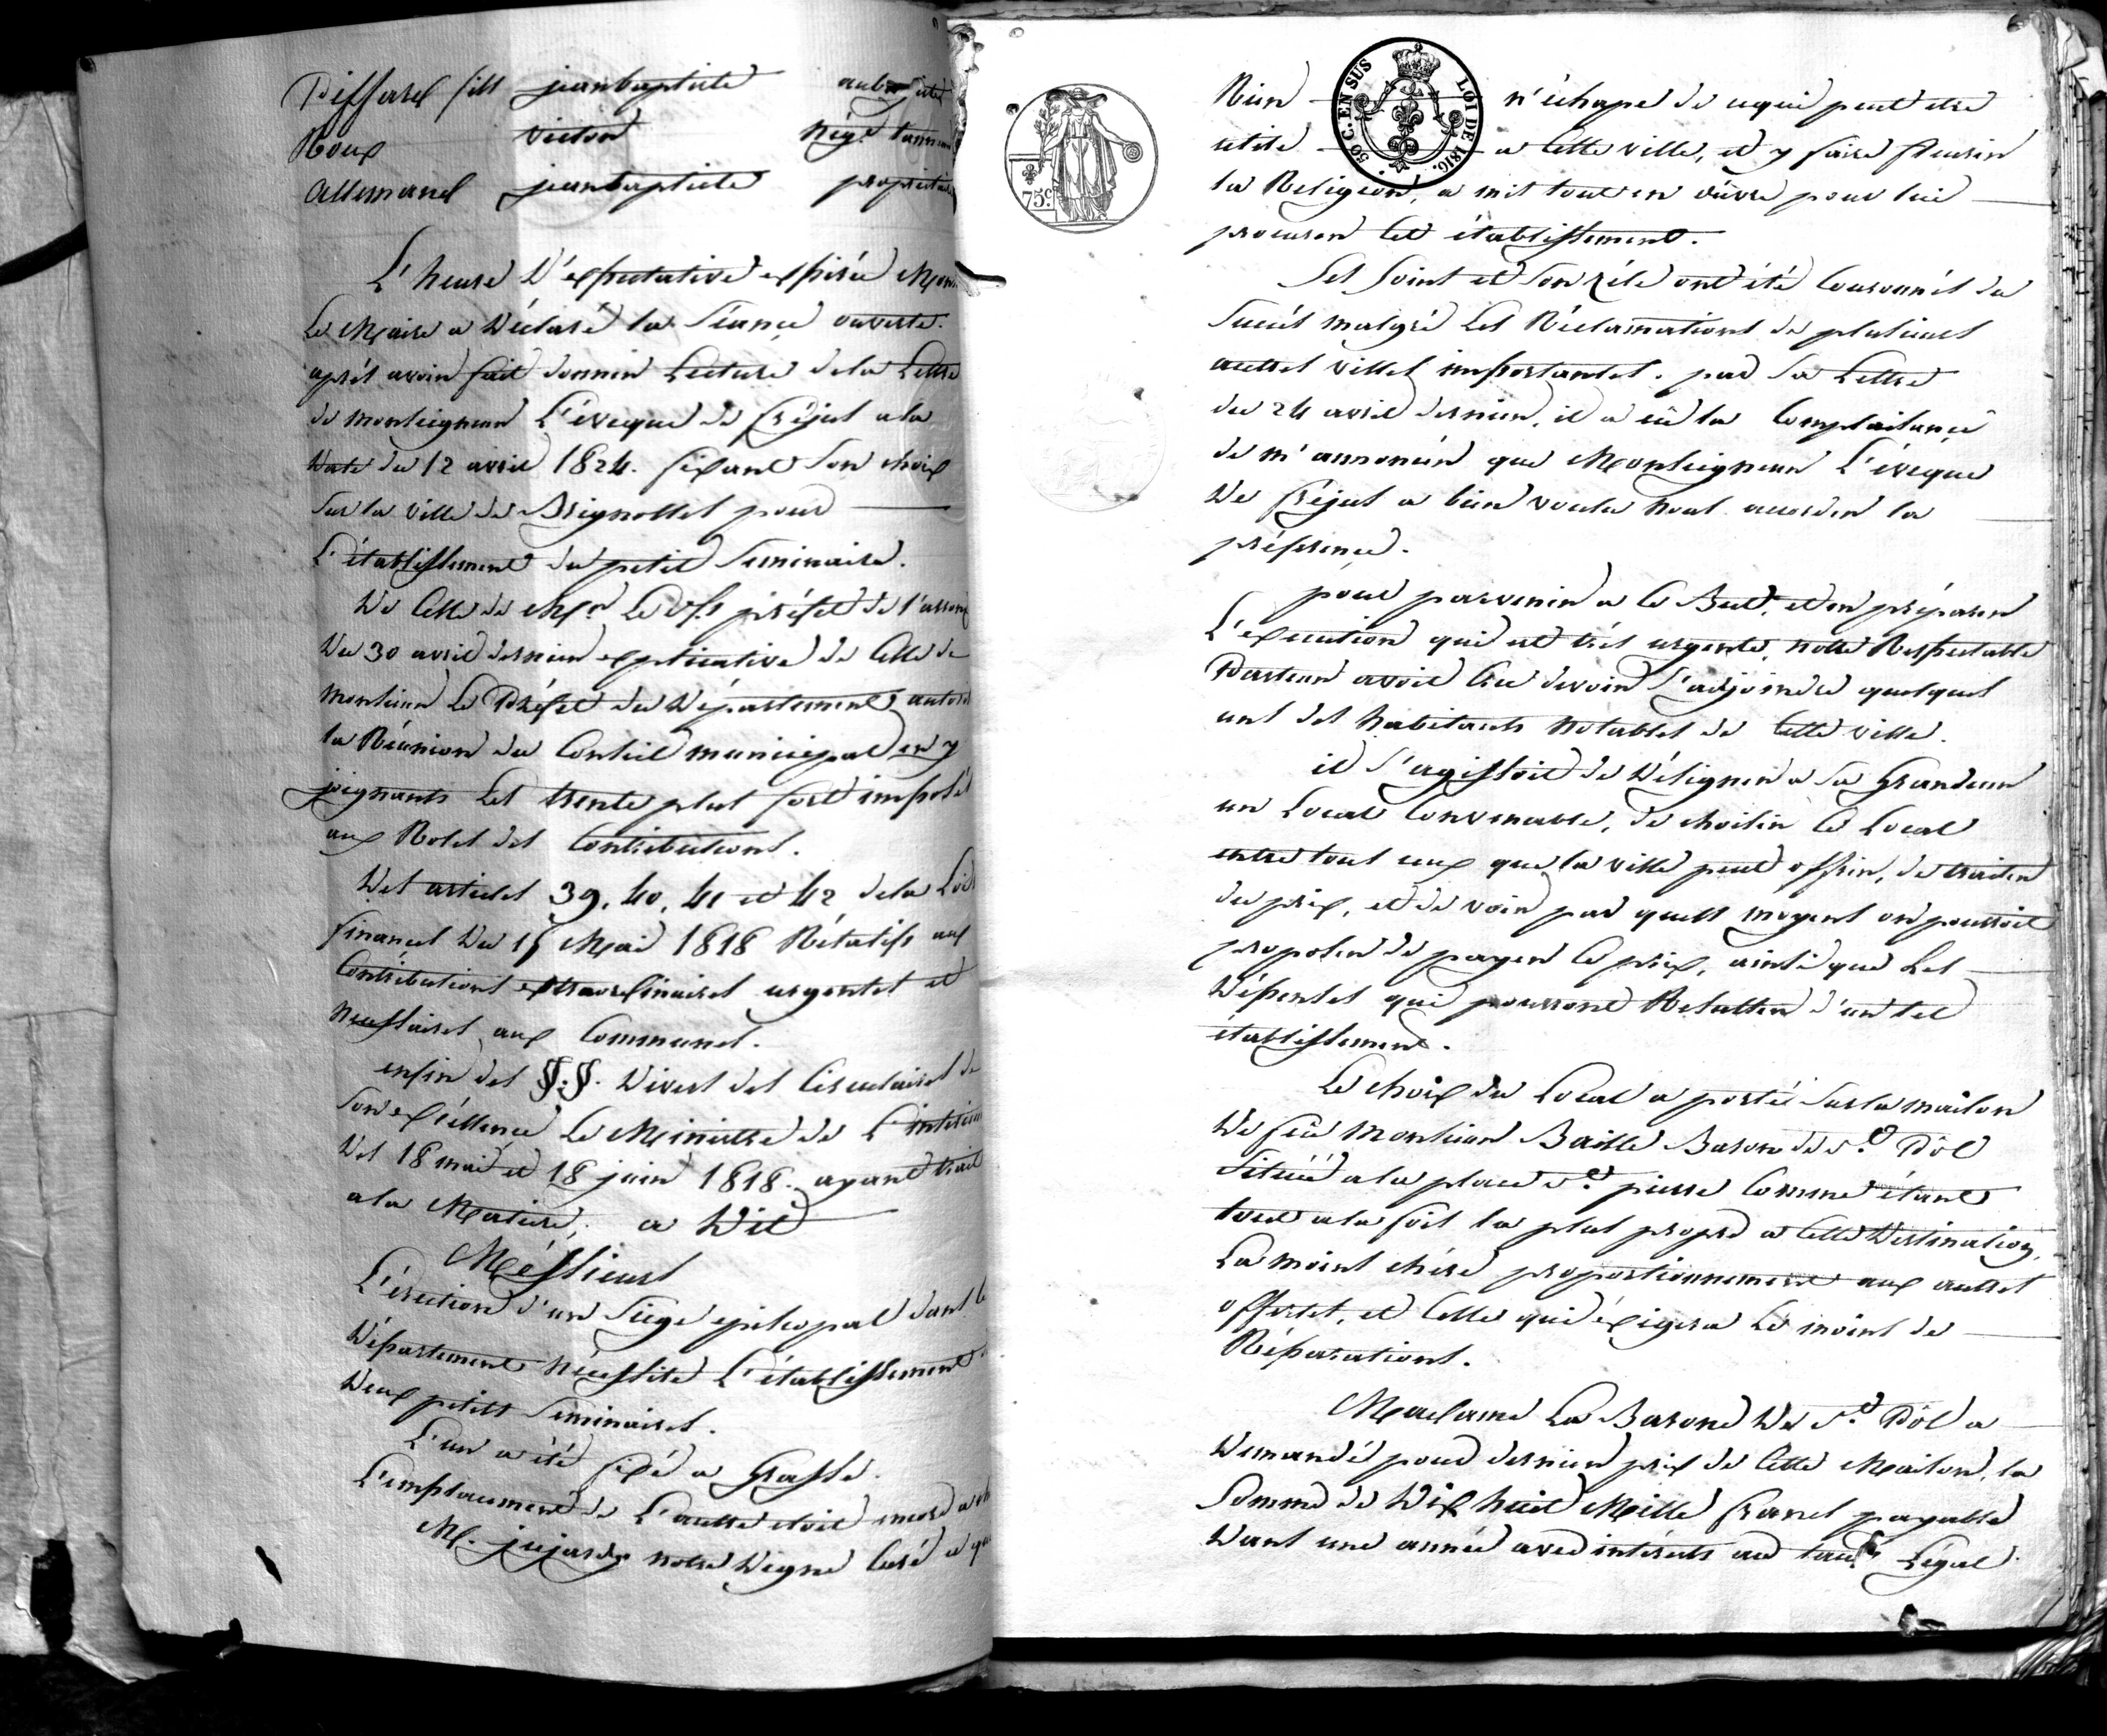 Piffard fils jeanbaptiste aubergiste
Roux victor Nég.t tanneur
allemand jeanbaptiste propriétaire
L'heure d'expectative expirée Mons
Le Maire a déclaré la séance ouverte.
après avoir fait donner Lecture de la Lettre
de monseigneur L'évêque de fréjus a la
date du 12 avril 1824. fixant son choix
sur la ville de Brignolles pour
L'établissement du petit seminaire.
De Celle de Mr. Le s/s préfet de l'arrond
du 30 avril dernier explicative de Celle de
monsieur Le Préfet du Département autoris
la Réunion du Conseil municipal en y
joignants les trente plus fort imposés
aux Roles des Contributions.
Des articles 39, 40, 41 et 42 de la Loi
finances du 15 Mai 1818 Rélatifs aux
Contributions extraordinaires urgentes et
necessaires aux Communes.
enfin des §.§. divers des Circulaires de
son exéllence Le Ministre de L'intérieur
des 18 mai et 18 juin 1818. ayant trait
a la Matiere, a Dit
Méssieurs
L'érection d'un siege episcopal dans le
Département nécessite L'établissement
deux petits seminaires.
L'un a été fixé a Grasse.
L'emplacement de L'autre etoit encore a
M. jujardy notre digne Curé a qui
6
Rien n'échape de cequi peut etre
utile a Cette ville, et y faire fleurir
la Religion, a mis tout en œuvre pour lui
procurer Cet établissement.
50 C. EN SUS LOI DE 1816.
75c.
Ses soins et son zéle ont été Couronnés du
succés malgré Les Réclamations de plusieurs
autres villes importantes. par sa Lettre
du 24 avril dernier, il a eû la Complaisance
de m'annoncer que Monseigneur L'évêque
De fréjus a bien voulu nous accorder la
préférence.
pour parvenir a Ce But, et en préparer
L'execution qui est trés urgente, notre Respectable
Pasteur avoit Cru devoir s'adjoindre quelques
uns des habitants notables de Cette ville.
il s'agissoit de Désigner a sa Grandeur
un Local Convenable, de choisir Ce Local
entre tous ceux que la ville peut offrir, de traiter
du prix, et de voir par quels moyens on pourroit
proposer de payer Ce prix, ainsi que Les
Dépenses qui pourront Resulter d'un tel
établissement.
Le choix du Local a porté sur la maison
De feû Monsieur Baille Baron de St. Pôl
située a la place St. pierre Comme étant
tout a la fois la plus propre a Cette Destination,
La moins chére proportionnement aux autres
offertes, et Celle qui éxigera Le moins de
Réparations.
Madame La Barone De St. Pôl a
Demandé pour dernier prix de Cette Maison, la
somme de Dix huit Mille francs payable
Dans une année avec intérets au taux Légal.